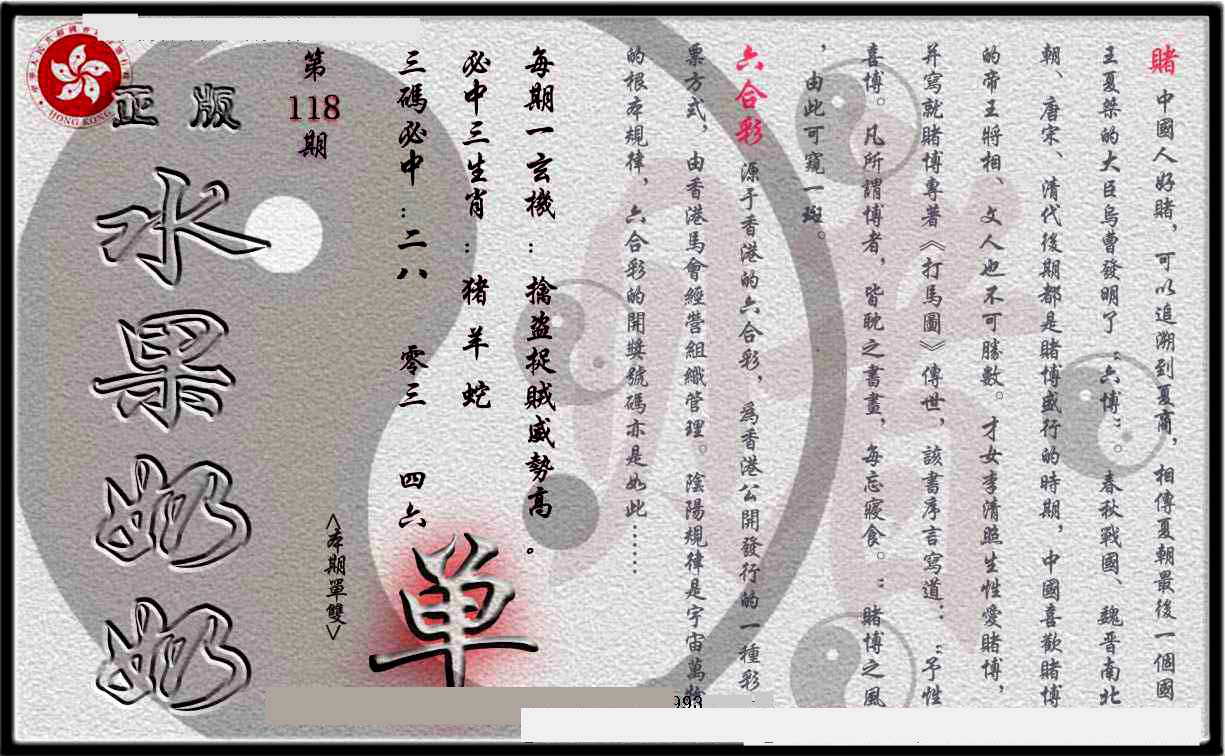 賭 中國人好賭，可以追溯到夏商，相傳夏朝最後一個國
王夏桀的大臣烏曹發明了“六博”。春秋戰國、魏晋南北
朝、唐宋、清代後期都是賭博盛行的時期，中國喜歡賭博
的帝王將相、文人也不可勝數。才女李清照生性愛賭博，
并寫就賭博專著《打馬圖》傳世，該書序言寫道：“予性
喜博。凡所謂博者，皆耽之書畫，每忘寢食。”賭博之風
，由此可窺一斑。
六合彩 源于香港的六合彩，為香港公開發行的一種彩
票方式，由香港馬會經營組織管理。陰陽規律是宇宙萬物
的根本規律，六合彩的開獎號碼亦是如此……
每期一玄機：擒盜捉賊威勢高。
必中三生肖：猪 羊 蛇
三碼必中：二八 零三 四六
<本期單雙>
单
第
118
期
正版
水果奶奶
HONG KONG
993